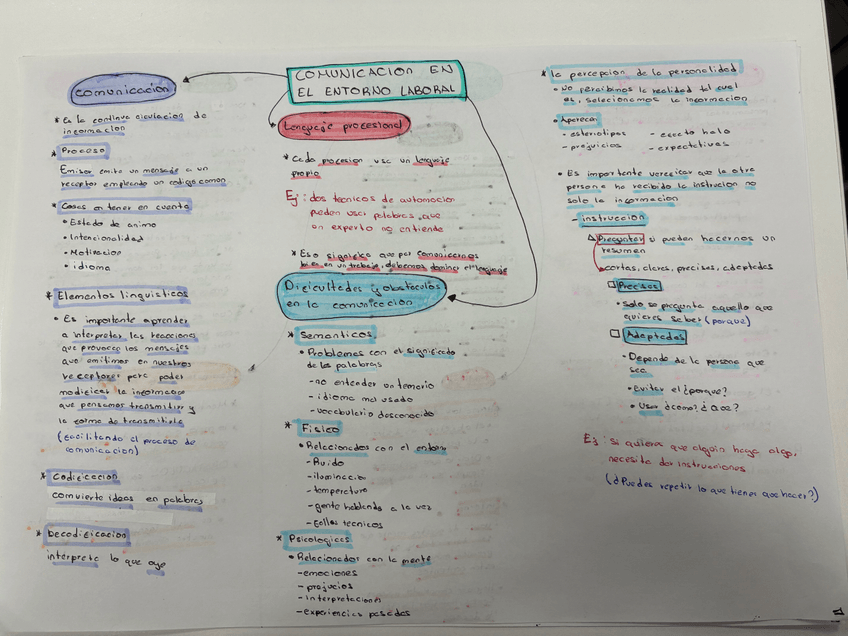 COMUNICACION EN
EL ENTORNO LABORAL
comunicacion
* Es la continua circulacion de
informacion
* Proceso
Emisor emite un mensaje a un
receptor empleando un codigo comun
* Cosas a tener en cuenta
• Estado de animo
• Intencionalidad
• Motivacion
• idioma
* Elementos linguisticos
• Es importante aprender
a interpretar las reacciones
que provocan los mensajes
que emitimos en nuestros
receptores para poder
modificar la informacion
que pensamos transmitir y
la forma de transmitirla
(facilitando el proceso de
comunicacion)
* Codificacion
convierte ideas en palabras
* Decodificacion
interpreta lo que oye
Lenguaje profesional
* Cada profesion usa un lenguaje
propio
Ej: dos tecnicos de automocion
pueden usar palabras que
un experto no entiende
* Eso significa que para comunicarnos
bien en un trabajo, debemos dominar el lenguaje
Dificultades y obstaculos
en la comunicacion
* Semanticos
• Problemas con el significado
de las palabras
- no entender un temario
- idioma mal usado
- vocabulario desconocido
* Fisico
• Relacionados con el entorno
- Ruido
- iluminacion
- temperatura
- gente hablando a la vez
- fallos tecnicos
* Psicologicas
• Relacionados con la mente
- emociones
- prejucios
- interpretaciones
- experiencias pasadas
* la percepcion de la personalidad
• No percibimos la realidad tal cual
es, selecionamos la informacion
• Aparecen
- esteriotipos - efecto halo
- prejuicios - expectativas
• Es importante verificar que la otra
persona ha recibido la instrucion no
solo la informacion
- instruccion
Preguntar si pueden hacernos un
resumen
cortas, claras, precisas, adaptadas
□ Precisas
• Solo se pregunta aquello que
quieres saber (porque)
□ Adaptadas
• Depende de la persona que
sea
• Evitar el ¿porque?
• Usar ¿como? ¿Que?
Ej: si quieres que alguin haga algo,
necesita dar instrucciones
(¿Puedes repetir lo que tienes que hacer?)